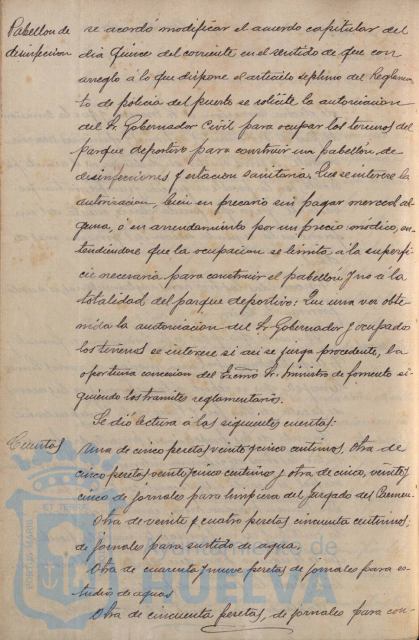 Pabellon de
desinfeccion
se acordó modificar el acuerdo capitular del
dia quince del corriente en el sentido de que con
arreglo á lo que dispone el articulo septimo del Reglamen
to de policia del puerto se solicite la autorizacion
del Sr. Gobernador Civil para ocupar los terrenos del
parque deportivo para construir un pabellón de
desinfecciones y estacion sanitaria. Que se interese la
autorizacion, bien en precario sin pagar merced al
guna, ó en arrendamiento por un precio módico, en
tendiendose que la ocupacion se limita á la superfi
cie necesaria para construir el pabellon y no á la
totalidad del parque deportivo: Que una vez obte
nida la autorizacion del Sr. Gobernador y ocupado
los terrenos se interese si asi se juzga procedente, la
oportuna concesion del Excmo Sr. Ministro de fomento si
guiendo los tramites reglamentarios.
Se dió lectura á las siguientes cuentas:
Cuentas
Una de cinco pesetas veinte y cinco centimos, otra de
cinco pesetas veinte y cinco centimos y otra de cinco, veinte y
cinco de jornales para limpieza del Juzgado del Carmen.
Otra de veinte y cuatro pesetas cincuenta centimos,
de jornales para surtido de agua,
Otra de cuarenta y nueve pesetas de jornales para es-
tudio de aguas
Otra de cincuenta pesetas, de jornales para con-
de
HUELVA